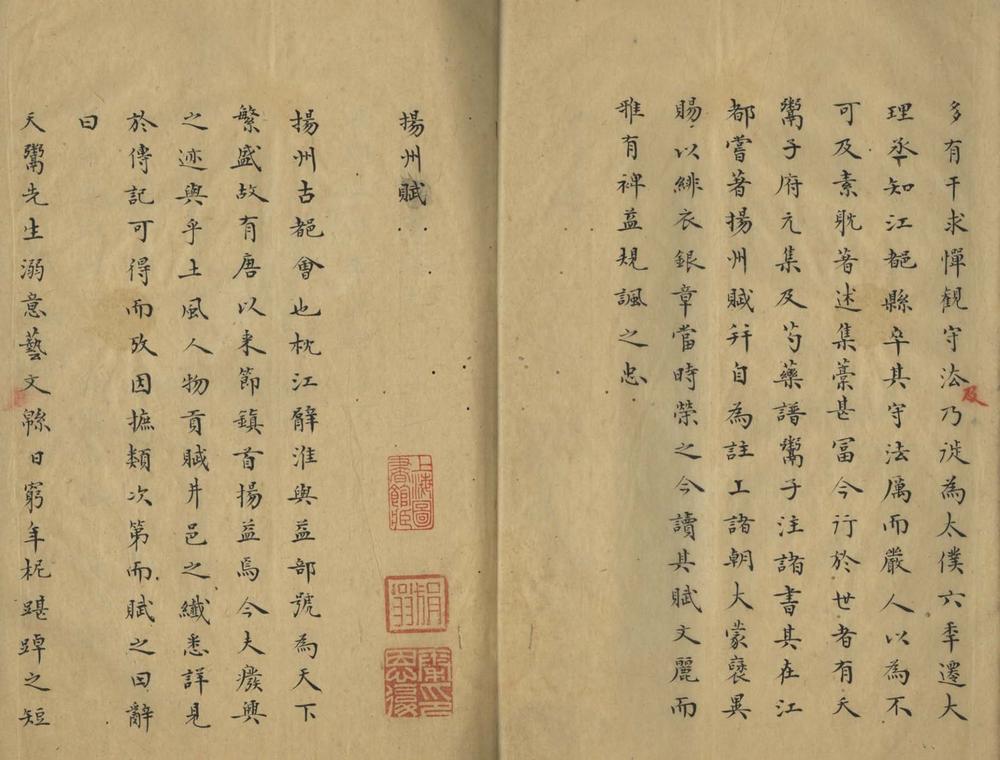 多有干求憚觀守法乃徙為太僕六秊遷大
及
理丞知江都縣卒其守法厲而嚴人以為不
可及素耽著述集藁甚冨今行於世者有天
鬻子府元集及芍藥譜鬻子注諸書其在江
都嘗著揚州賦幷自為註上諸朝大蒙襃異
賜以緋衣銀章當時榮之今讀其賦文麗而
雅有裨益規諷之忠
揚州賦
上海圖
書館臧
揚州古都會也枕江臂淮與益部號為天下
繁盛故有唐以来節鎮首揚益焉今夫廢興
之迹與乎土風人物貢賦井邑之纖悉詳見
於傳記可得而攷因摭類次第而賦之曰辭
曰
天鬻先生溺意藝文緜日窮年柅踸踔之短